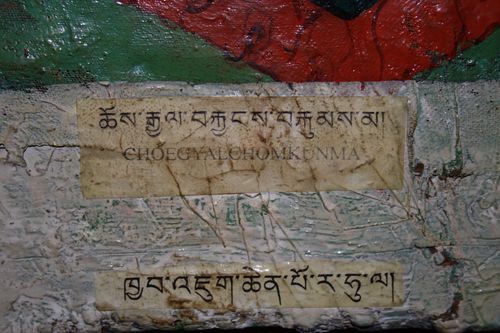 ཆོས་རྒྱལ་བརྐྱངས་བརྐུམས་མ།
CHOEGYALCHOMKUNMA
ཁྱབ་འཇུག་ཆེན་པོ་ར་ཧུ་ལ།